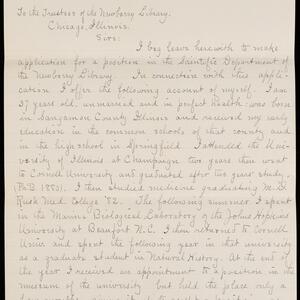 To the Trustees of the Newberry Library,
Chicago, Illinois.
Sirs:
I beg leave herewith to make
application for a position in the Scientific Department of
the Newberry Library. In connection with this appli-
cation I offer the following account of myself. I am
37 years old, unmarried and in perfect health; was born
in Sangamon County Illinois and received my early
education in the common schools of that county and
in the high school in Springfield. I attended the Uni-
versity of Illinois at Champaign two years then went
to Cornell University and graduated after two years study,
(Ph.B. 1880). I then studied medicine graduating M.D.
Rush Med. College '82. The following summer I spent
in the Marine Biological Laboratory of the Johns Hopkins
University at Beaufort N.C. I then returned to Cornell
Univ. and spent the following year in that university
as a graduate student in Natural History. At the end of
the year I received an appointment to a position in the
museum of the university but held the place only a